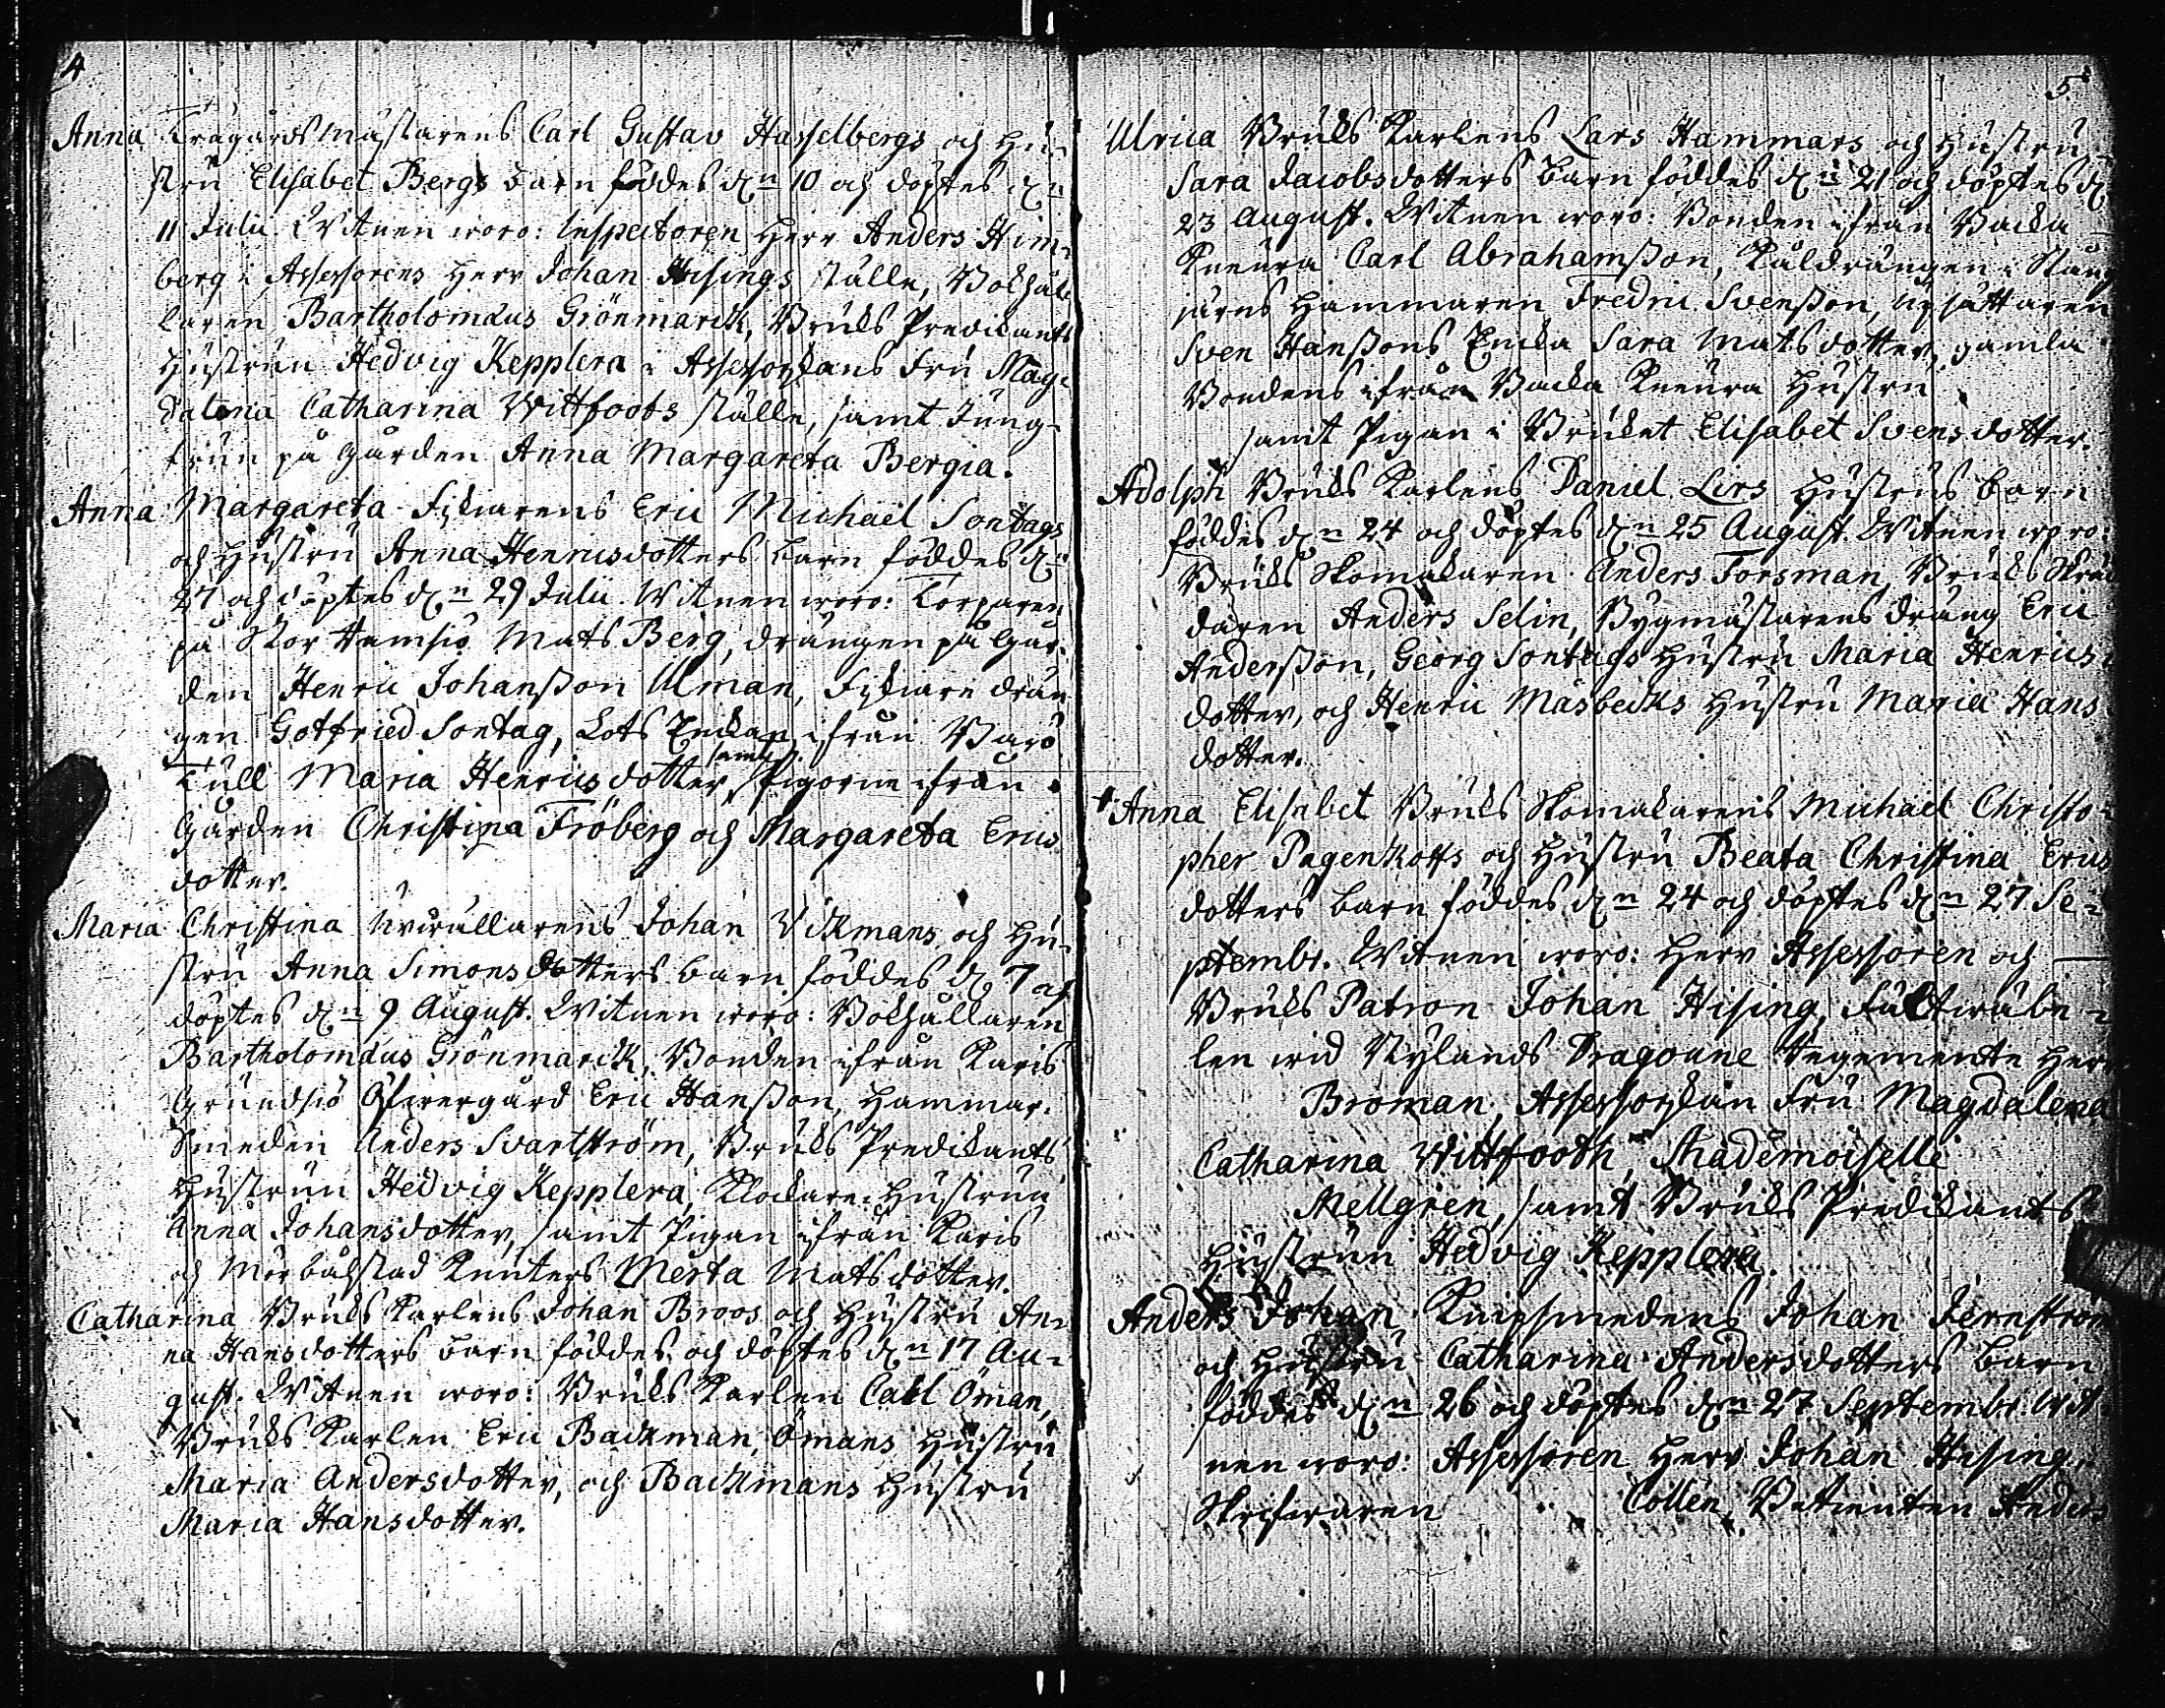 4
Anna Trägårdsmästarens Carl Gustav Hasselbergs och hu-
stru Elisabet Bergs barn föddes dn 10 och döptes dn
11 Julii. Witnen woro: Inspectoren Herr Anders Him-
berg i Assessorens Herr Johan Hisings ställe, Bokhål-
laren Bartholomäus Grönmarck, Bruks Predikants
Hustrun Hedvig Kepplera i Assessorskans Fru Mag-
dalena Catharina Wittfoots ställe, samt Jung-
frun på Gården Anna Margareta Bergia.
Anna Margareta Fiskarens Eric Michael Sontags
och Hustru Anna Henricsdotters barn föddes dn
27 och döptes dn 29 Julii. Witnen woro: Torparen
på Stor Ramsiö Mats Berg, drängen på Går-
den Henric Johansson Ulman, Fiskare drän
gen Gotfried Sontag, Lots Enckan ifrån Barö
Kull Maria Henricsdotter, samt Pigorne ifrån
Gården Christina Fröberg och Margareta Erics
dotter.
Maria Christina Urvällarens Johan Vikmans och Hu-
stru Anna Simonsdotters barn föddes d 7 och
döptes dn 9 August. Witnen woro: Bokhållaren
Bartholomäus Grönmarck, Bonden ifrån Karis
Grundsiö Öfwergård Eric Hansson, Hammar-
Smeden Anders Svartström, Bruks Predikants
Hustrun Hedvig Kepplera, Klockare-Hustrun
Anna Johansdotter, samt Pigan ifrån Karis
och Mörbåhlstad Knuters Merta Matsdotter.
Catharina Bruks Karlens Johan Broos och Hustru An-
na Hansdotters barn föddes och döptes dn 17 Au-
gust. Witnen woro: Bruks Karlen Carl Öman,
Bruks Karlen Eric Backman, Ömans Hustru
Maria Andersdotter, och Backmans Hustru
Maria Hansdotter.
5.
Ulrica Bruks Karlens Lars Hammars och Hustru
Sara Jacobsdotters barn föddes dn 21 och döptes d
23 August. Witnen woro: Bonden ifrån Backa
Knura Carl Abrahamsson, Kåldrängen i Stång
järns Hammaren Fredric Svensson, Upsättaren
Sven Hanssons Encka Sara Matsdotter, gamla
Bondens ifrån Backa Knura Hustru
samt Pigan i Bruket Elisabet Svensdotter.
Adolph Bruks Karlens Daniel Lirs Hustrus barn
föddes dn 24 och döptes dn 25 August. Witnen woro:
Bruks Skomakaren Anders Forsman, Bruks Skräd
daren Anders Selin, Bygmästarens dräng Eric
Andersson, Georg Sontags Hustru Maria Henrics-
dotter, och Henric Måsbecks Hustru Maria Hans
dotter.
+ Anna Elisabet Bruks Skomakarens Michael Christo-
pher Pagenkoffs och Hustru Beata Christina Erics
dotters barn föddes dn 24 och döptes dn 27 Se-
ptembr. Witnen woro: Herr Assessoren och
Bruks Patron Johan Hising, Fältwäbe-
len wid Nylands Dragoune Regemente Herr
Broman, Assessorskan Fru Magdalena
Catharina Wittfooth, Mademoiselle
Mellgren, samt Bruks Predikants
Hustrun Hedvig Kepplera.
Anders Johan Knipsmedens Johan Jernström
och Hustru Catharina Andersdotters barn
föddes dn 26 och döptes dn 27 Septembr. Wit
nen woro: Assessoren Herr Johan Hising,
Skrifwaren Collén, Betienten Anders